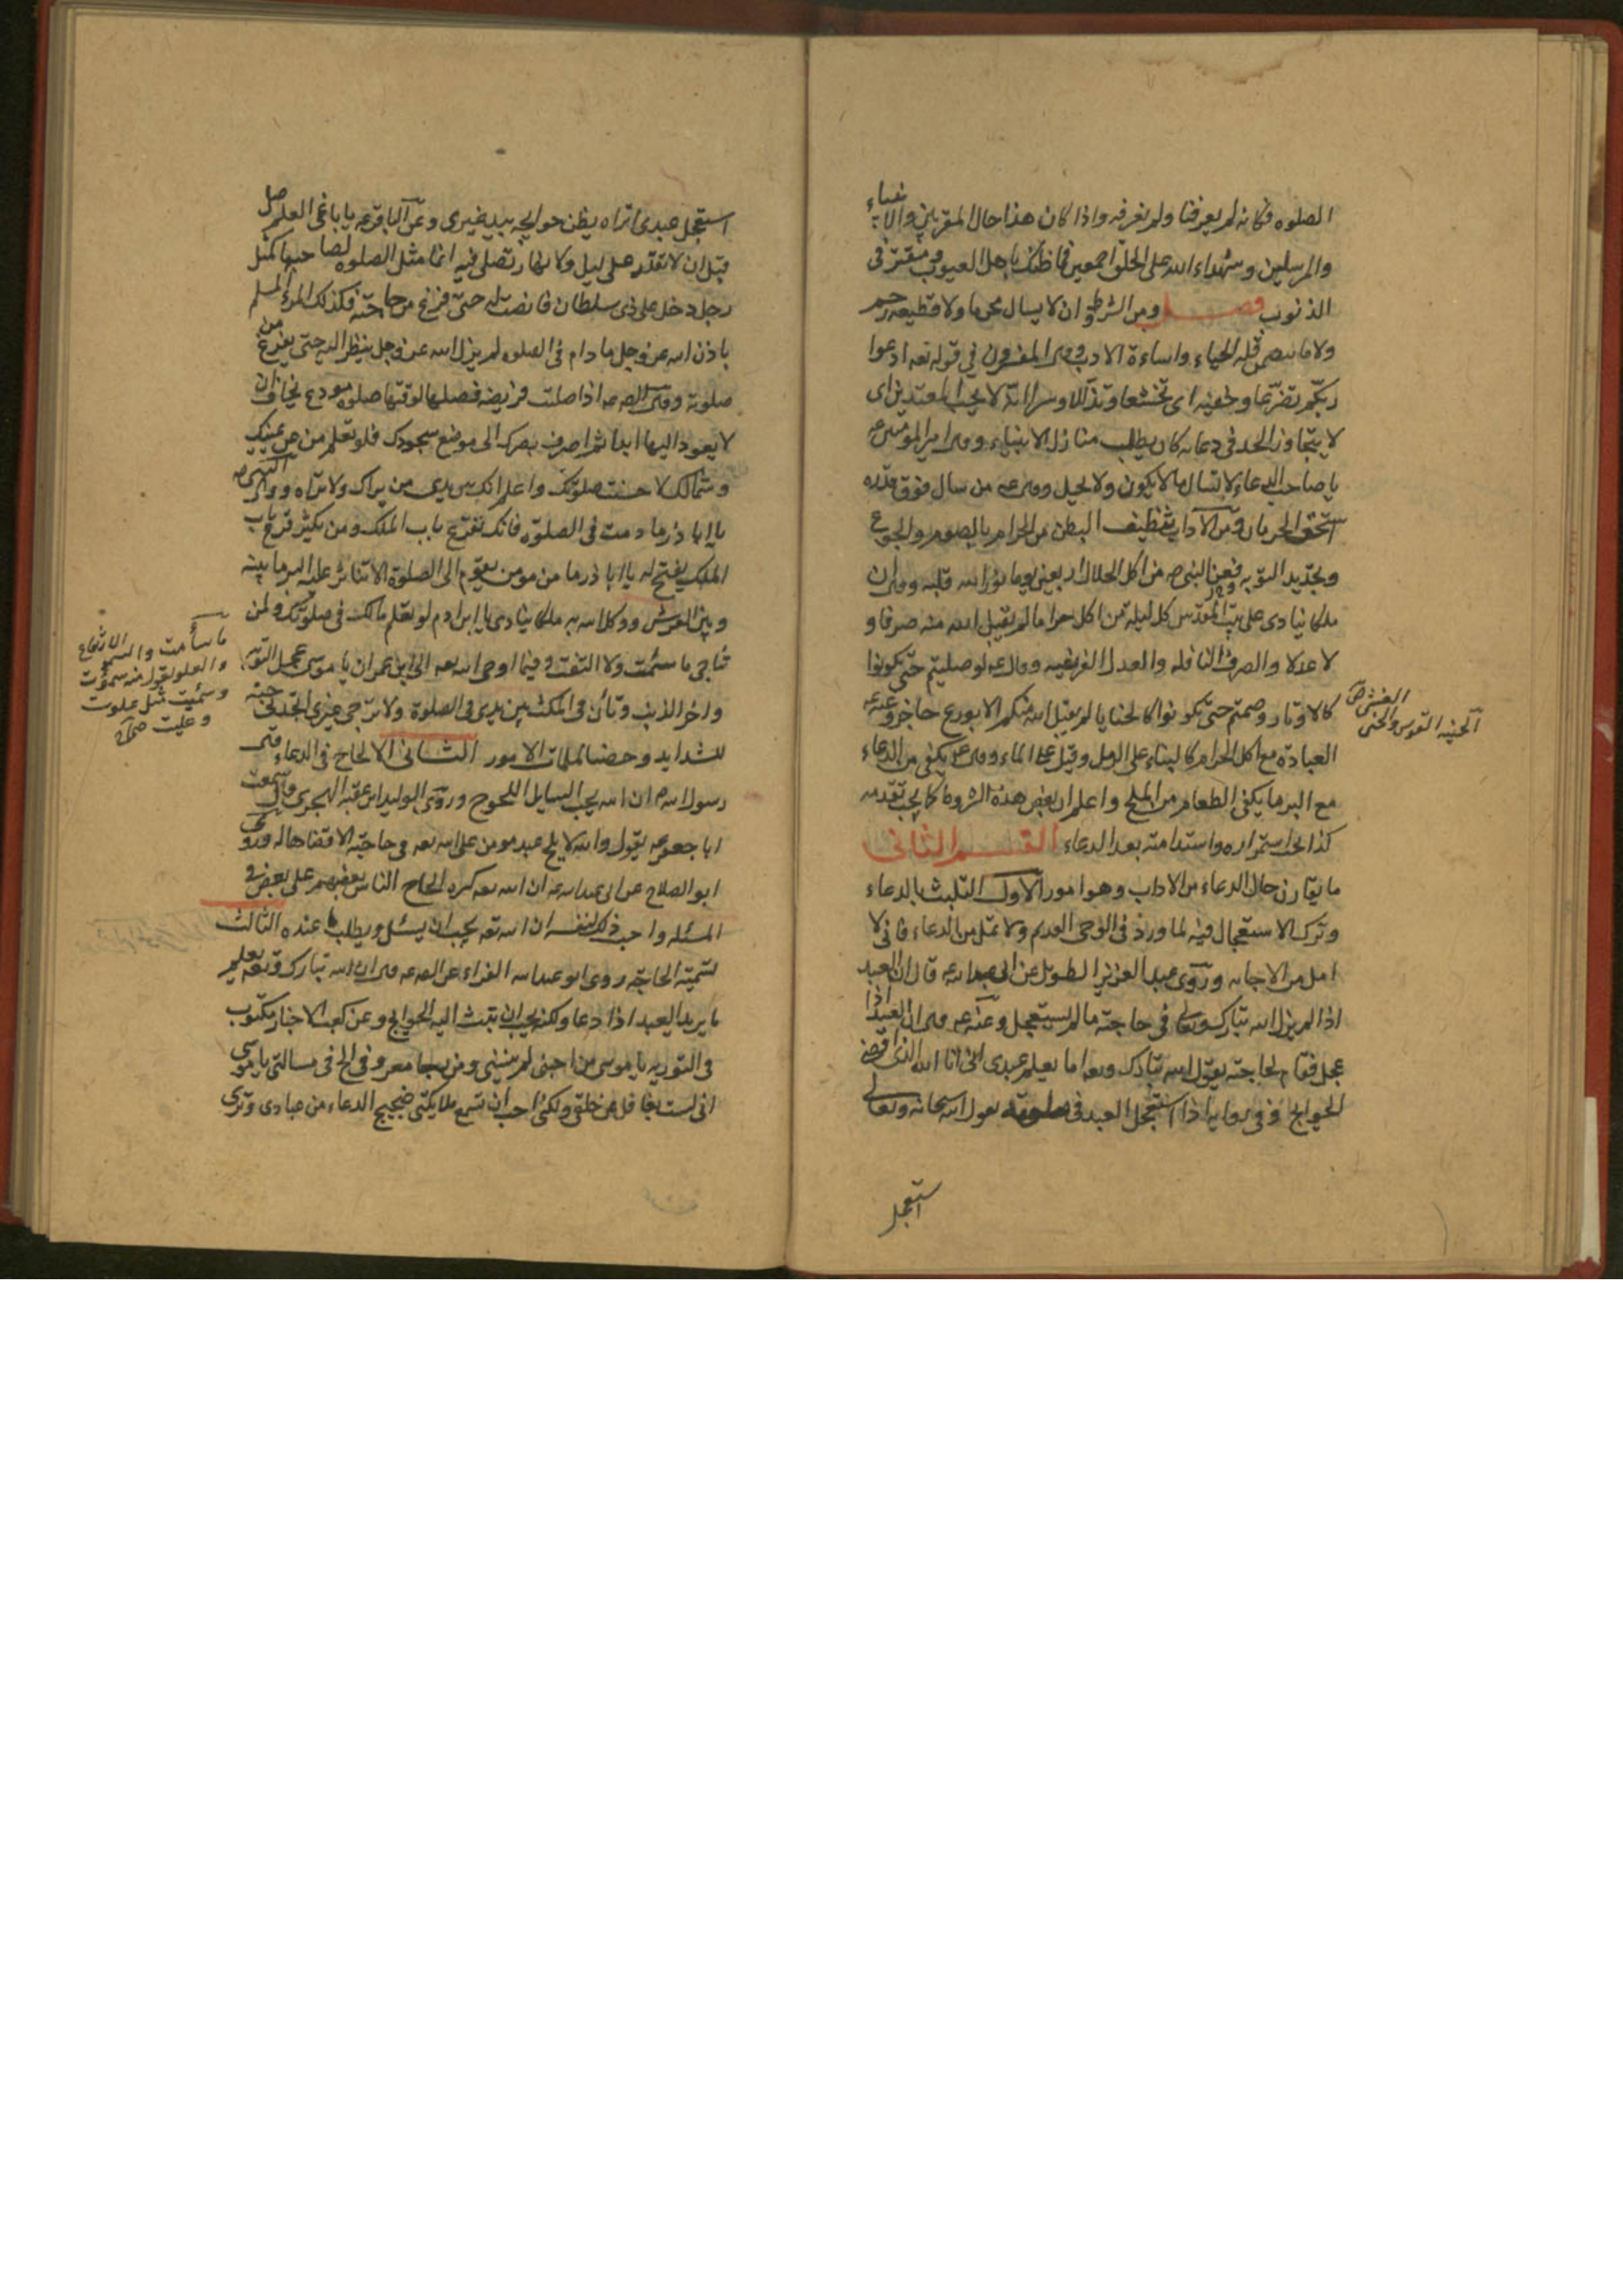 الصلوه فكانه لم يعرفنا ولم نعرفه واذا كان هذا حال المقربين والانبياء
والمرسلين وشهداء الله على الخلق اجمعين فما ظنك باهل العيوب ومقترفى
الذنوب فصل ومن الشرط ان لا يسال محرما ولا قطيعه رحم
ولا ما يتضمن قله الحياء واساءة الادب وقال المفسرون في قوله تعه ادعوا
ربكم تضرعا وخفيه اى تخشعا وتذللا وسرا انه لا يحب المعتدين اى
لا يتجاوز الحد فى دعائه كان يطلب منازل الانبياء وقال امير المؤمنين عه
يا صاحب الدعاء لا تسال ما لا يكون ولا يحل وقال عه من سال فوق قدره
استحق الحرمان ومن الاداب تنظيف البطن من الحرام بالصوم والجوع
وتجديد التوبه فعن النبى ص من اكل الحلال اربعين يوما نور الله قلبه وقال ان
ملكا ينادى على بيت المقدس كل ليلة من اكل حراما لم يقبل الله منه صرفا و
لا عدلا والصرف النافله والعدل الفريضه وقال عه لو صليتم حتى تكونوا
كالاوتار وصمتم حتى تكونوا كالحنايا لم يقبل الله منكم الا بورع حاجز وعنه عه
العبادة مع اكل الحرام كالبناء على الرمل وقيل على الماء وقال عه يكفى من الدعاء
مع البر ما يكفى الطعام من الملح واعلم ان بعض هذه الشروط كما يجب تقدمه
كذا يجب استمراره واستدامته بعد الدعاء القسم الثانى
ما يقارن حال الدعاء من الاداب وهو امور الاول التلبث بالدعاء
وترك الاستعجال فيه لما ورد فى الوحى القديم ولا تمل من الدعاء فانى لا
امل من الاجابه وروى عبد العزيز الطويل عن ابى عبد الله عه قال ان العبد
اذا لم يزل الله تبارك وتعالى فى حاجته ما لم يستعجل وعنه عه قال ان العبد اذا
عجل فقام لحاجته يقول الله تبارك وتعه اما يعلم عبدى انى انا الله الذى اقضى
الحوايج وفى رواية اذا استعجل العبد فى صلوته يقول الله سبحانه وتعالى
استعجل
الحنيه القوس والحنى
استعجل عبدى اتراه يظن حوايجه بيد غيرى وعن الباقر عه يا باغى العلم صل
قبل ان لا تقدر على ليل ولا نهار تصلى فيه انما مثل الصلوه لصاحبها كمثل
رجل دخل على ذى سلطان فانصت له حتى فرغ من حاجته فكذلك المرء المسلم
باذن الله عز وجل ما دام فى الصلوه لم يزل الله عز وجل ينظر اليه حتى يفرغ من
صلوته وقال الص عه اذا صليت فريضه فصلها لوقتها صلوه مودع يخاف ان
لا يعود اليها ابدا ثم اصرف بصرك الى موضع سجودك فلو تعلم من عن يمينك
وشمالك لاحسنت صلوتك واعلم انك بين يدى من يراك ولا تراه وقال النبى ص
يا ابا ذر ما دمت فى الصلوة فانك تقرع باب الملك ومن يكثر قرع باب
الملك يفتح له يا ابا ذر ما من مومن يقوم الى الصلوة الا تناثر عليه البر ما بينه
وبين العرش ووكل الله به ملكا ينادى يا ابن ادم لو تعلم مالك فى صلوتك ولمن
تناجى ما سئمت ولا التفت وفيما اوحى الله تعه الى ابن عمران يا موسى عجل التوبه
واخر الذنب وتأن فى المكث بين يدى فى الصلوة ولا ترج غيرى اتخذنى جنه
للشدايد وحصنا لملمات الامور الثانى الالحاح فى الدعاء قال
رسول الله ص ان الله يحب السايل اللحوح وروى الوليد ابن عقبه الهجرى قال سمعت
ابا جعفر عه يقول والله لا يلح عبد مومن على الله تعه فى حاجته الا قضاها له وروى
ابو الصلاح عن ابى عبد الله عه ان الله تعه كره الحاح الناس بعضهم على بعض فى
المسئله واحب ذلك لنفسه ان الله تعه يحب ان يسئل ويطلب ما عنده الثالث
تسمية الحاجه روى ابو عبد الله الفراء عن الص عه قال ان الله تبارك وتعه يعلم
ما يريد العبد اذا دعا ولكنه يحب ان تبث اليه الحوايج وعن كعب الاحبار مكتوب
فى التوريه يا موسى من احبنى لم ينسنى ومن رجا معروفى الح فى مسالتى يا موسى
انى لست بغافل عن خلقى ولكنى احب ان تسمع ملايكتى ضجيج الدعاء من عبادى وترى
ما سأمت والسمو الارتفاع
والعلو تقول منه سموت
وسميت مثل علوت
وعليت